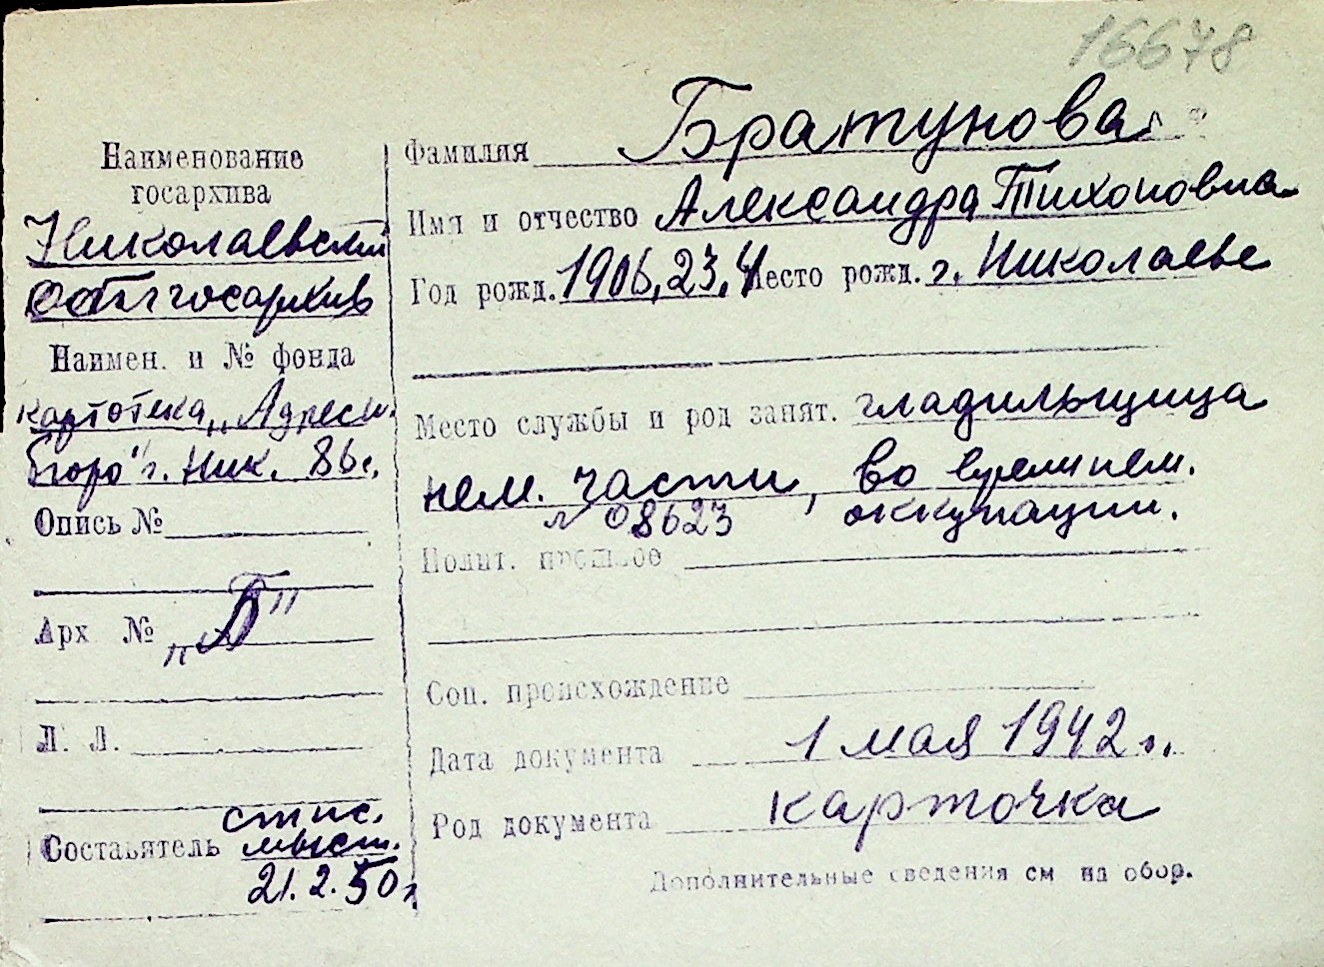 16678
Наименование
госархива
Николаевский
облгосархив
Наимен. и № фонда
картотека „Адресн.
бюро" г. Ник. 86 г.
Опись №
Арх №
„Б"
Л. Л.
Составитель
21.2.50 г.
Фамилия Братунова
Имя и отчество Александра Тихоновна
Год рожд. 1906, 23.4 Место рожд. г. Николаеве
Место службы и род занят. гладильщица
нем. части, во время нем.
№ 08623 оккупации.
Полит. прошлое
Соц. происхождение
Дата документа 1 мая 1942 г.
Род документа карточка
Дополнительные сведения см на обор.